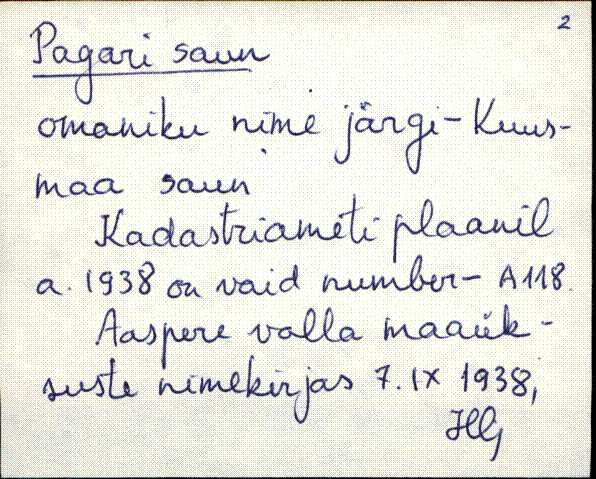 2
Pagari saun
omaniku nime järgi - Kuus-
maa saun
Kadastriameti plaanil
a. 1938 on vaid number - A118.
Aaspere valla maaük-
suste nimekirjas 7. IX 1938,
HG